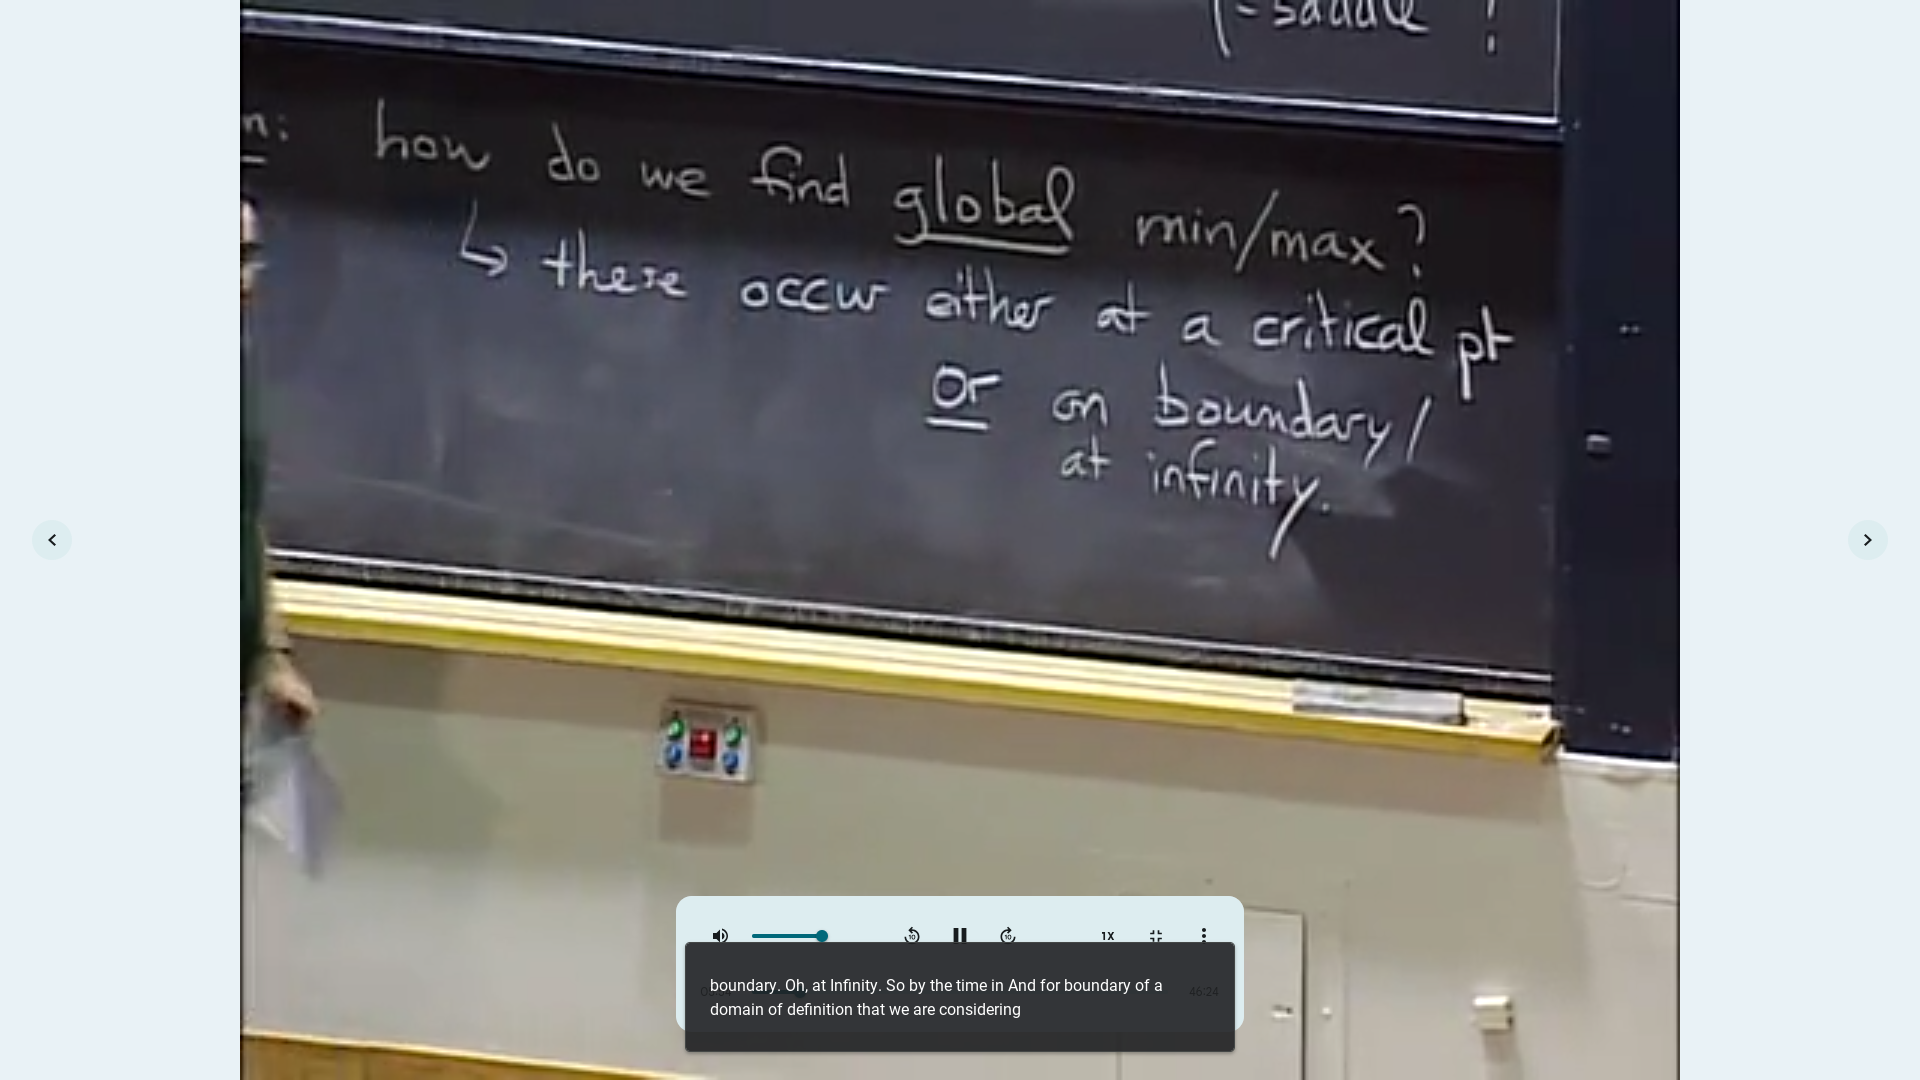 - saddle ?
n:
how do we find global min/max?
↳ these occur either at a critical pt
or on boundary/
at infinity.
10
10
1X
46:24
boundary. Oh, at Infinity. So by the time in And for boundary of a
domain of definition that we are considering